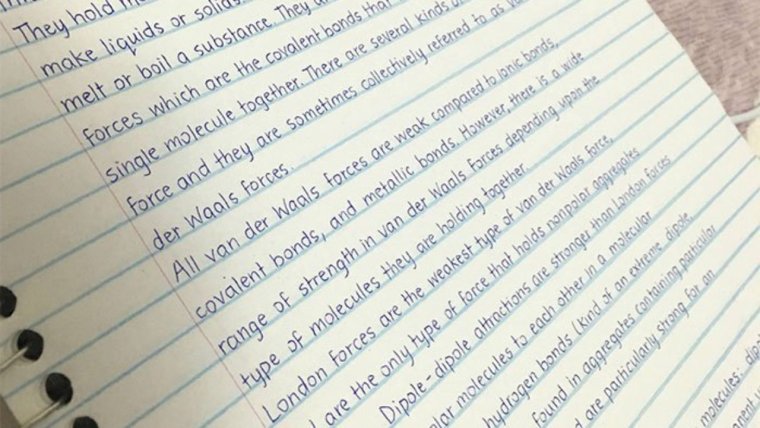 They hold
make liquids or solids.
melt or boil a substance. They
forces which are the covalent bonds that
single molecule together. There are several kinds
force and they are sometimes collectively referred to as
der Waals forces.
All van der Waals forces are weak compared to ionic bonds,
covalent bonds, and metallic bonds. However, there is a wide
range of strength in van der Waals forces depending upon the
type of molecules they are holding together.
London forces are the weakest type of van der Waals force,
are the only type of force that holds nonpolar aggregates
Dipole-dipole attractions are stronger than London forces
molecules to each other in a molecular
hydrogen bonds (kind of an extreme dipole,
found in aggregates containing particular
are particularly strong for an
molecules: